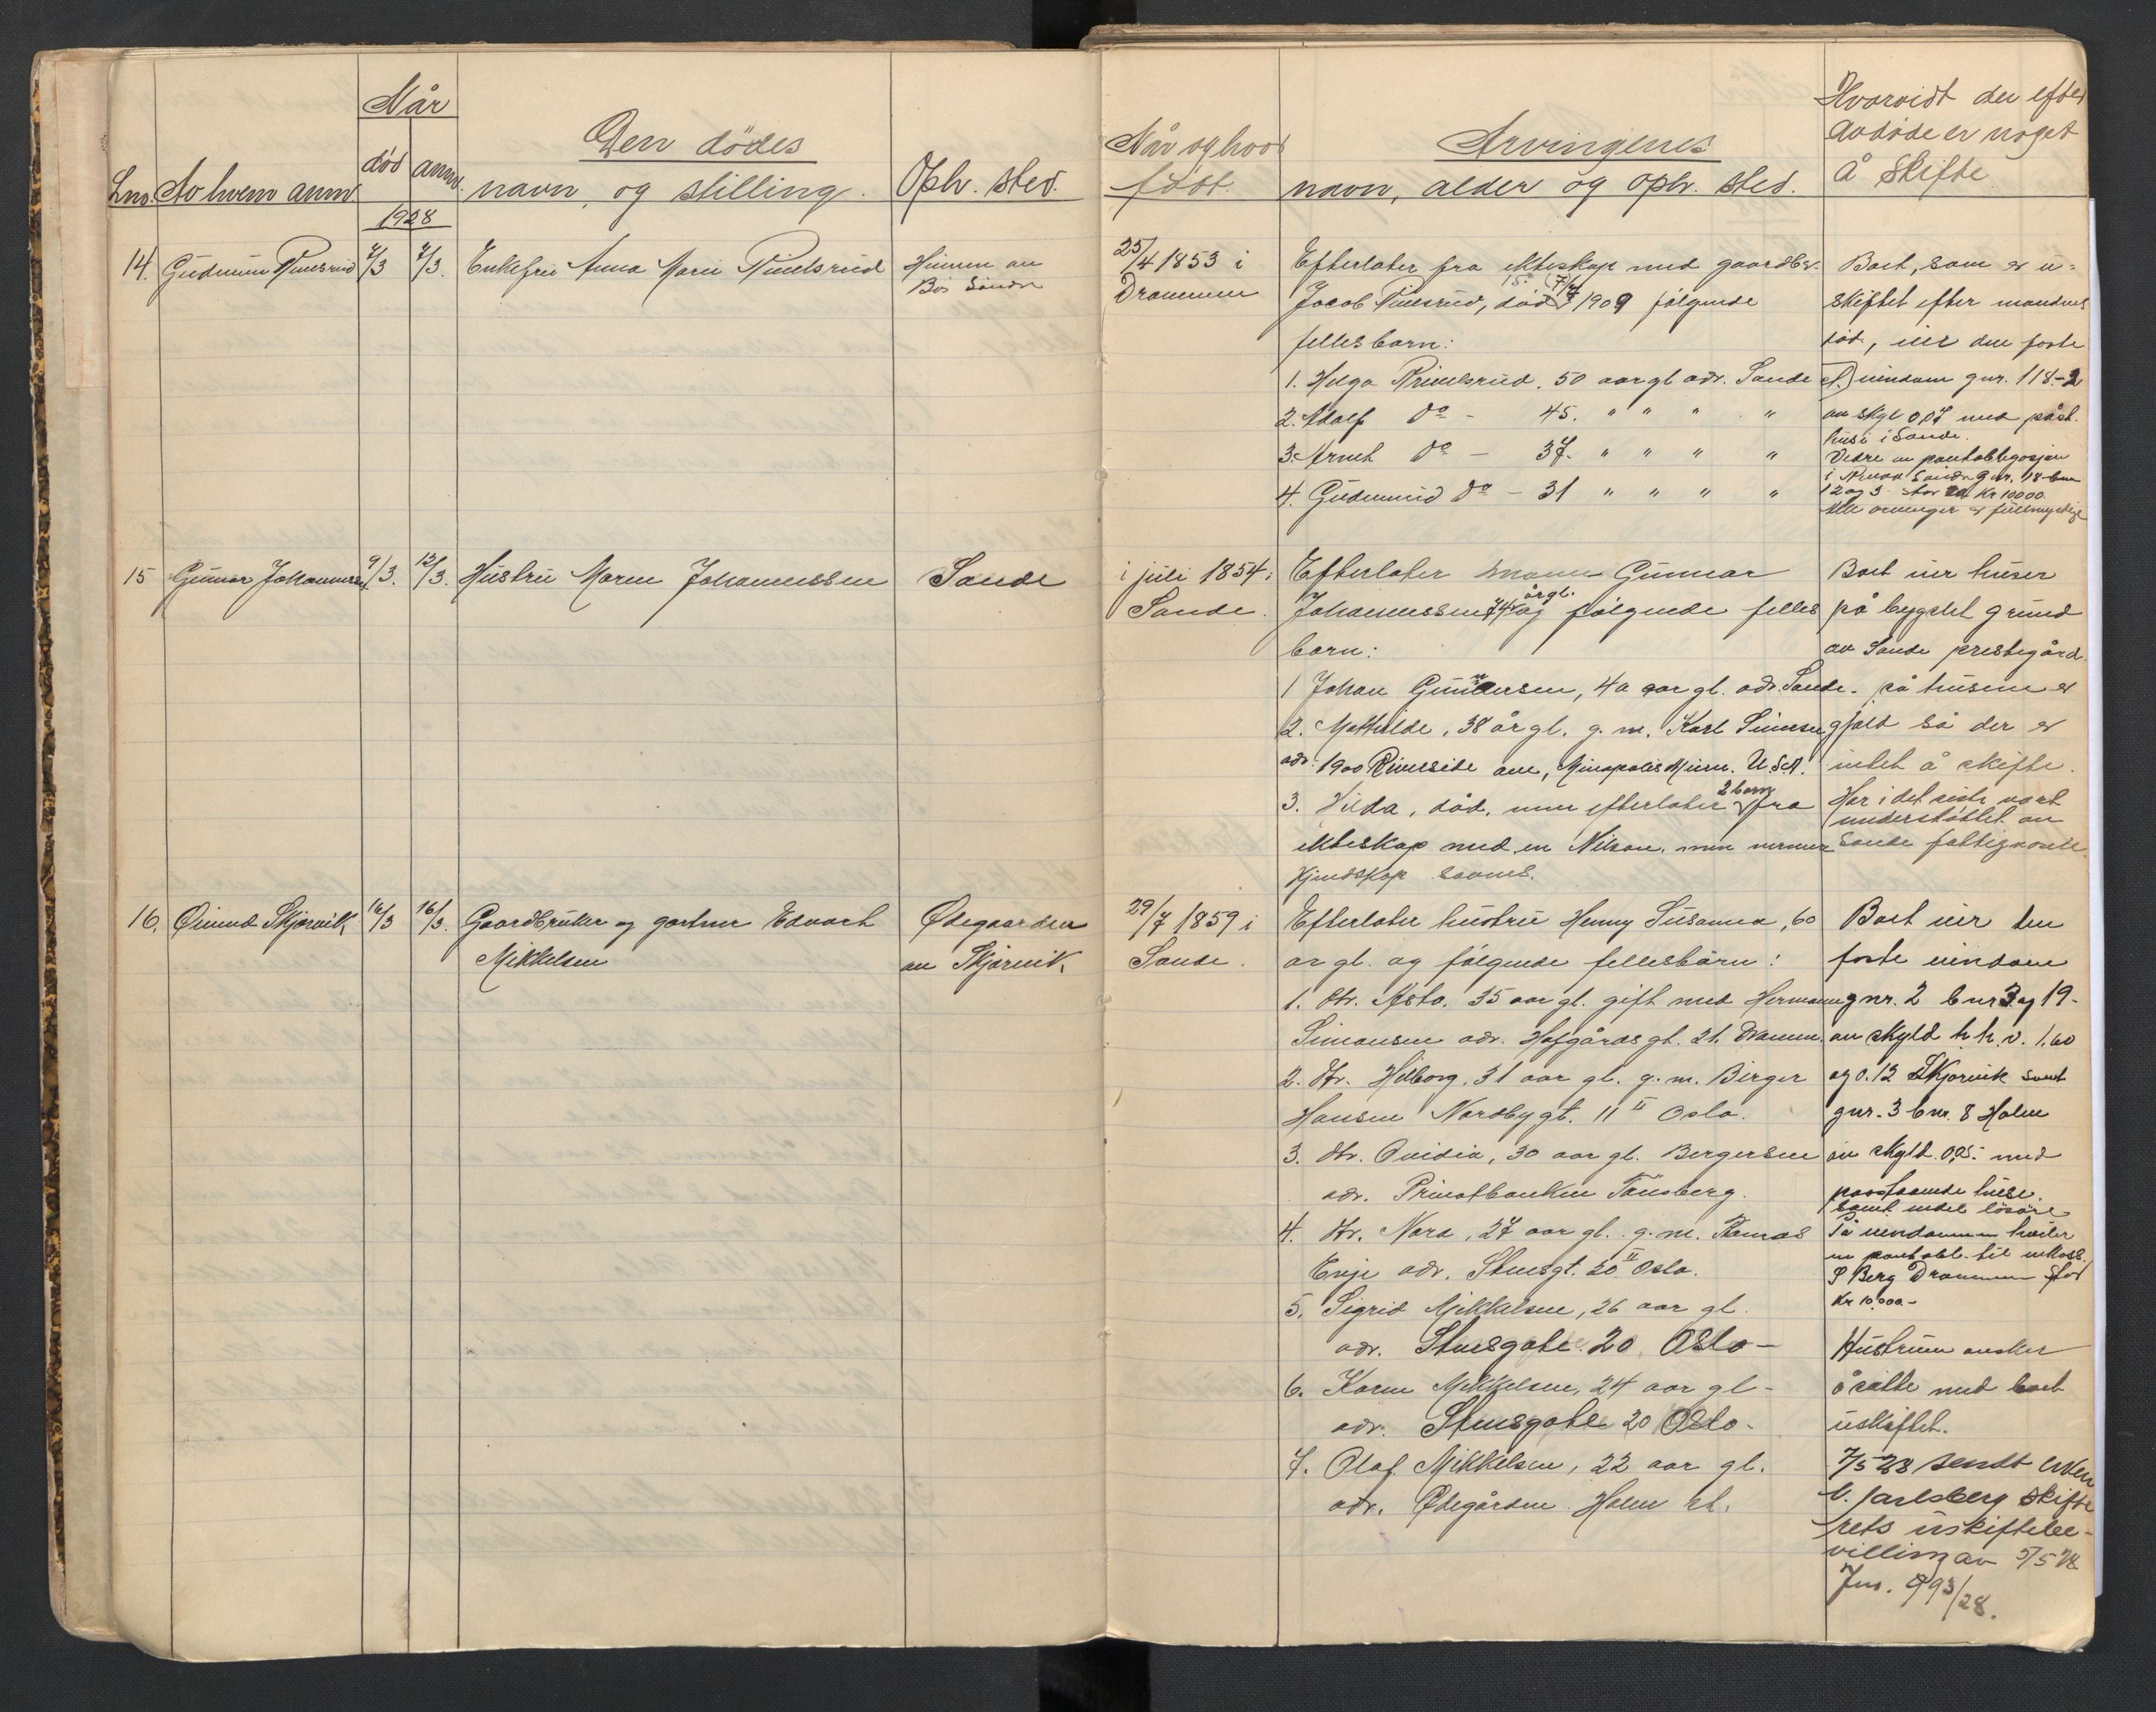 Når
Lno. Av hvem anm. død anm.
Den dødes
navn, og stilling.
Oph. sted.
Når og hvor
født.
Arvingenes
navn, alder og oph. sted.
Hvorvidt der efter
avdøde er noget
å skifte
1928
14. Gudmun 4/3 7/3. Enkefru Anna Marie
Bø Søndre
25/4 1853 i
Drammen
Efterlater fra ekteskap med gaardbr.
Jacob død 1909 følgende
fellesbarn:
1. Helga 50 aar gl. adr. Sande
2. Adolf do - 45. " " " "
3. Arnet do - 37. " " " "
4. Gudmund do - 31 " " " "
Boet, som er u-
skiftet efter mandens
død, eier den faste
eiendom gnr. 118.-2
av skyld 0,07 med påst.
hus i Sande.
Videre en pantobligasjon
i Søndre gnr. 18 bnr
1 2 og 3 stor Kr 10000.
Alle arvinger er fuldmyndige
15 Gunnar Johannessen 9/3. 12/3. Hustru Maren Johannessen Sande
i juli 1854 i
Sande.
Efterlater mann Gunnar
Johannessen 74 årgl. og følgende felles
barn:
1 Johan Gunnersen, 40 aar gl. adr. Sande.
2. Mathilde, 38 år gl. g. m. Karl Simensen
adr. 1900 Riverside ave, Minapolis Minn. U.S.A.
3. Hilda, død, men efterlater 2 barn fra
ekteskap med en Nilson, men nermere
kjendskap savnes.
Boet eier huser
på bygslet grund
av Sande prestegård.
på husene er
gjeld så der er
intet å skifte.
Har i det siste vært
understøttet av
Sande fattigvesen.
16. Øivind Skjørvik 14/3 16/3. Gaardbruker og gartner Edvart
Mikkelsen
Ødegaarden
av Skjørvik
29/7 1859 i
Sande.
Efterlater hustru Henny Susanna, 60
ar gl. og følgende fellesbørn:
1. dtr. Asta. 35 aar gl. gift med Hermann
Simonsen adr. Hofgårdsgt. 21. Dramm.
2. dtr. Hilborg, 31 aar gl. g. m. Birger
Hansen Nordbygt. 11 II Oslo.
3. dtr. Ovidia, 30 aar gl. Bergersen
adr. Privatbanken Tønsberg.
4. dtr. Nora, 27 aar gl. g. m. Tomas
Enje adr. Stensgt. 20 II Oslo.
5. Sigrid Mikkelsen, 26 aar gl.
adr. Stensgate 20 Oslo -
6. Karen Mikkelsen, 24 aar gl -
adr. Stensgate 20 Oslo -
7. Olaf Mikkelsen, 22 aar gl.
adr. Ødegården Holm st.
Boet eier den
faste eiendom
gnr. 2 bnr 3 og 19-
av skyld h.h.v. 1.60
og 0.12 Skjørvik samt
gnr. 3 bnr. 8 Holm
av skyld 0,05. med
paastaaende huse.
samt endel løsøre
På eiendommen hviler
en pantobl. til
S Berg Drammen stor
Kr 10.000-
Hustruen ønsker
å sitte med boet
uskiftet.
7/5 28 sendt enken
N. Jarlsberg skifte
rets uskiftebe-
villing av 5/5 28
Jno. 993/28.